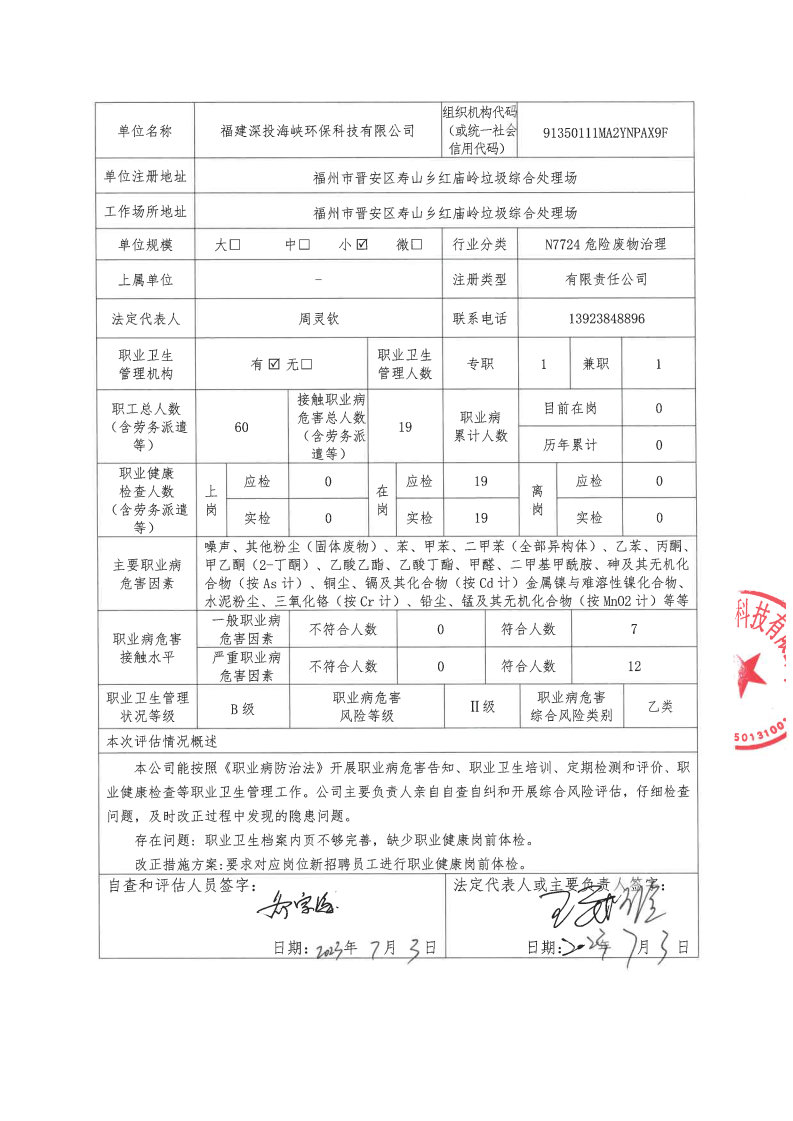 单位名称 福建深投海峡环保科技有限公司 组织机构代码（或统一社会信用代码） 91350111MA2YNPAX9F
单位注册地址 福州市晋安区寿山乡红庙岭垃圾综合处理场
工作场所地址 福州市晋安区寿山乡红庙岭垃圾综合处理场
单位规模 大□ 中□ 小☑ 微□ 行业分类 N7724 危险废物治理
上属单位 － 注册类型 有限责任公司
法定代表人 周灵钦 联系电话 13923848896
职业卫生管理机构 有☑无□ 职业卫生管理人数 专职 1 兼职 1
职工总人数（含劳务派遣等） 60 接触职业病危害总人数（含劳务派遣等） 19 职业病累计人数 目前在岗 0
历年累计 0
职业健康检查人数（含劳务派遣等） 上岗 应检 0 在岗 应检 19 离岗 应检 0
实检 0 实检 19 实检 0
主要职业病危害因素
噪声、其他粉尘（固体废物）、苯、甲苯、二甲苯（全部异构体）、乙苯、丙酮、
甲乙酮（2-丁酮）、乙酸乙酯、乙酸丁酯、甲醛、二甲基甲酰胺、砷及其无机化
合物（按 As 计）、铜尘、镉及其化合物（按 Cd 计）金属镍与难溶性镍化合物、
水泥粉尘、三氧化铬（按 Cr 计）、铅尘、锰及其无机化合物（按 MnO2 计）等等
职业病危害接触水平 一般职业病危害因素 不符合人数 0 符合人数 7
严重职业病危害因素 不符合人数 0 符合人数 12
职业卫生管理状况等级 B 级 职业病危害风险等级 Ⅱ级 职业病危害综合风险类别 乙类
本次评估情况概述
本公司能按照《职业病防治法》开展职业病危害告知、职业卫生培训、定期检测和评价、职
业健康检查等职业卫生管理工作。公司主要负责人亲自自查自纠和开展综合风险评估，仔细检查
问题，及时改正过程中发现的隐患问题。
存在问题：职业卫生档案内页不够完善，缺少职业健康岗前体检。
改正措施方案:要求对应岗位新招聘员工进行职业健康岗前体检。
自查和评估人员签字： 法定代表人或主要负责人签字：
日期：2023年 7月 3日 日期：2023年 7月 3日
科技有
5013100